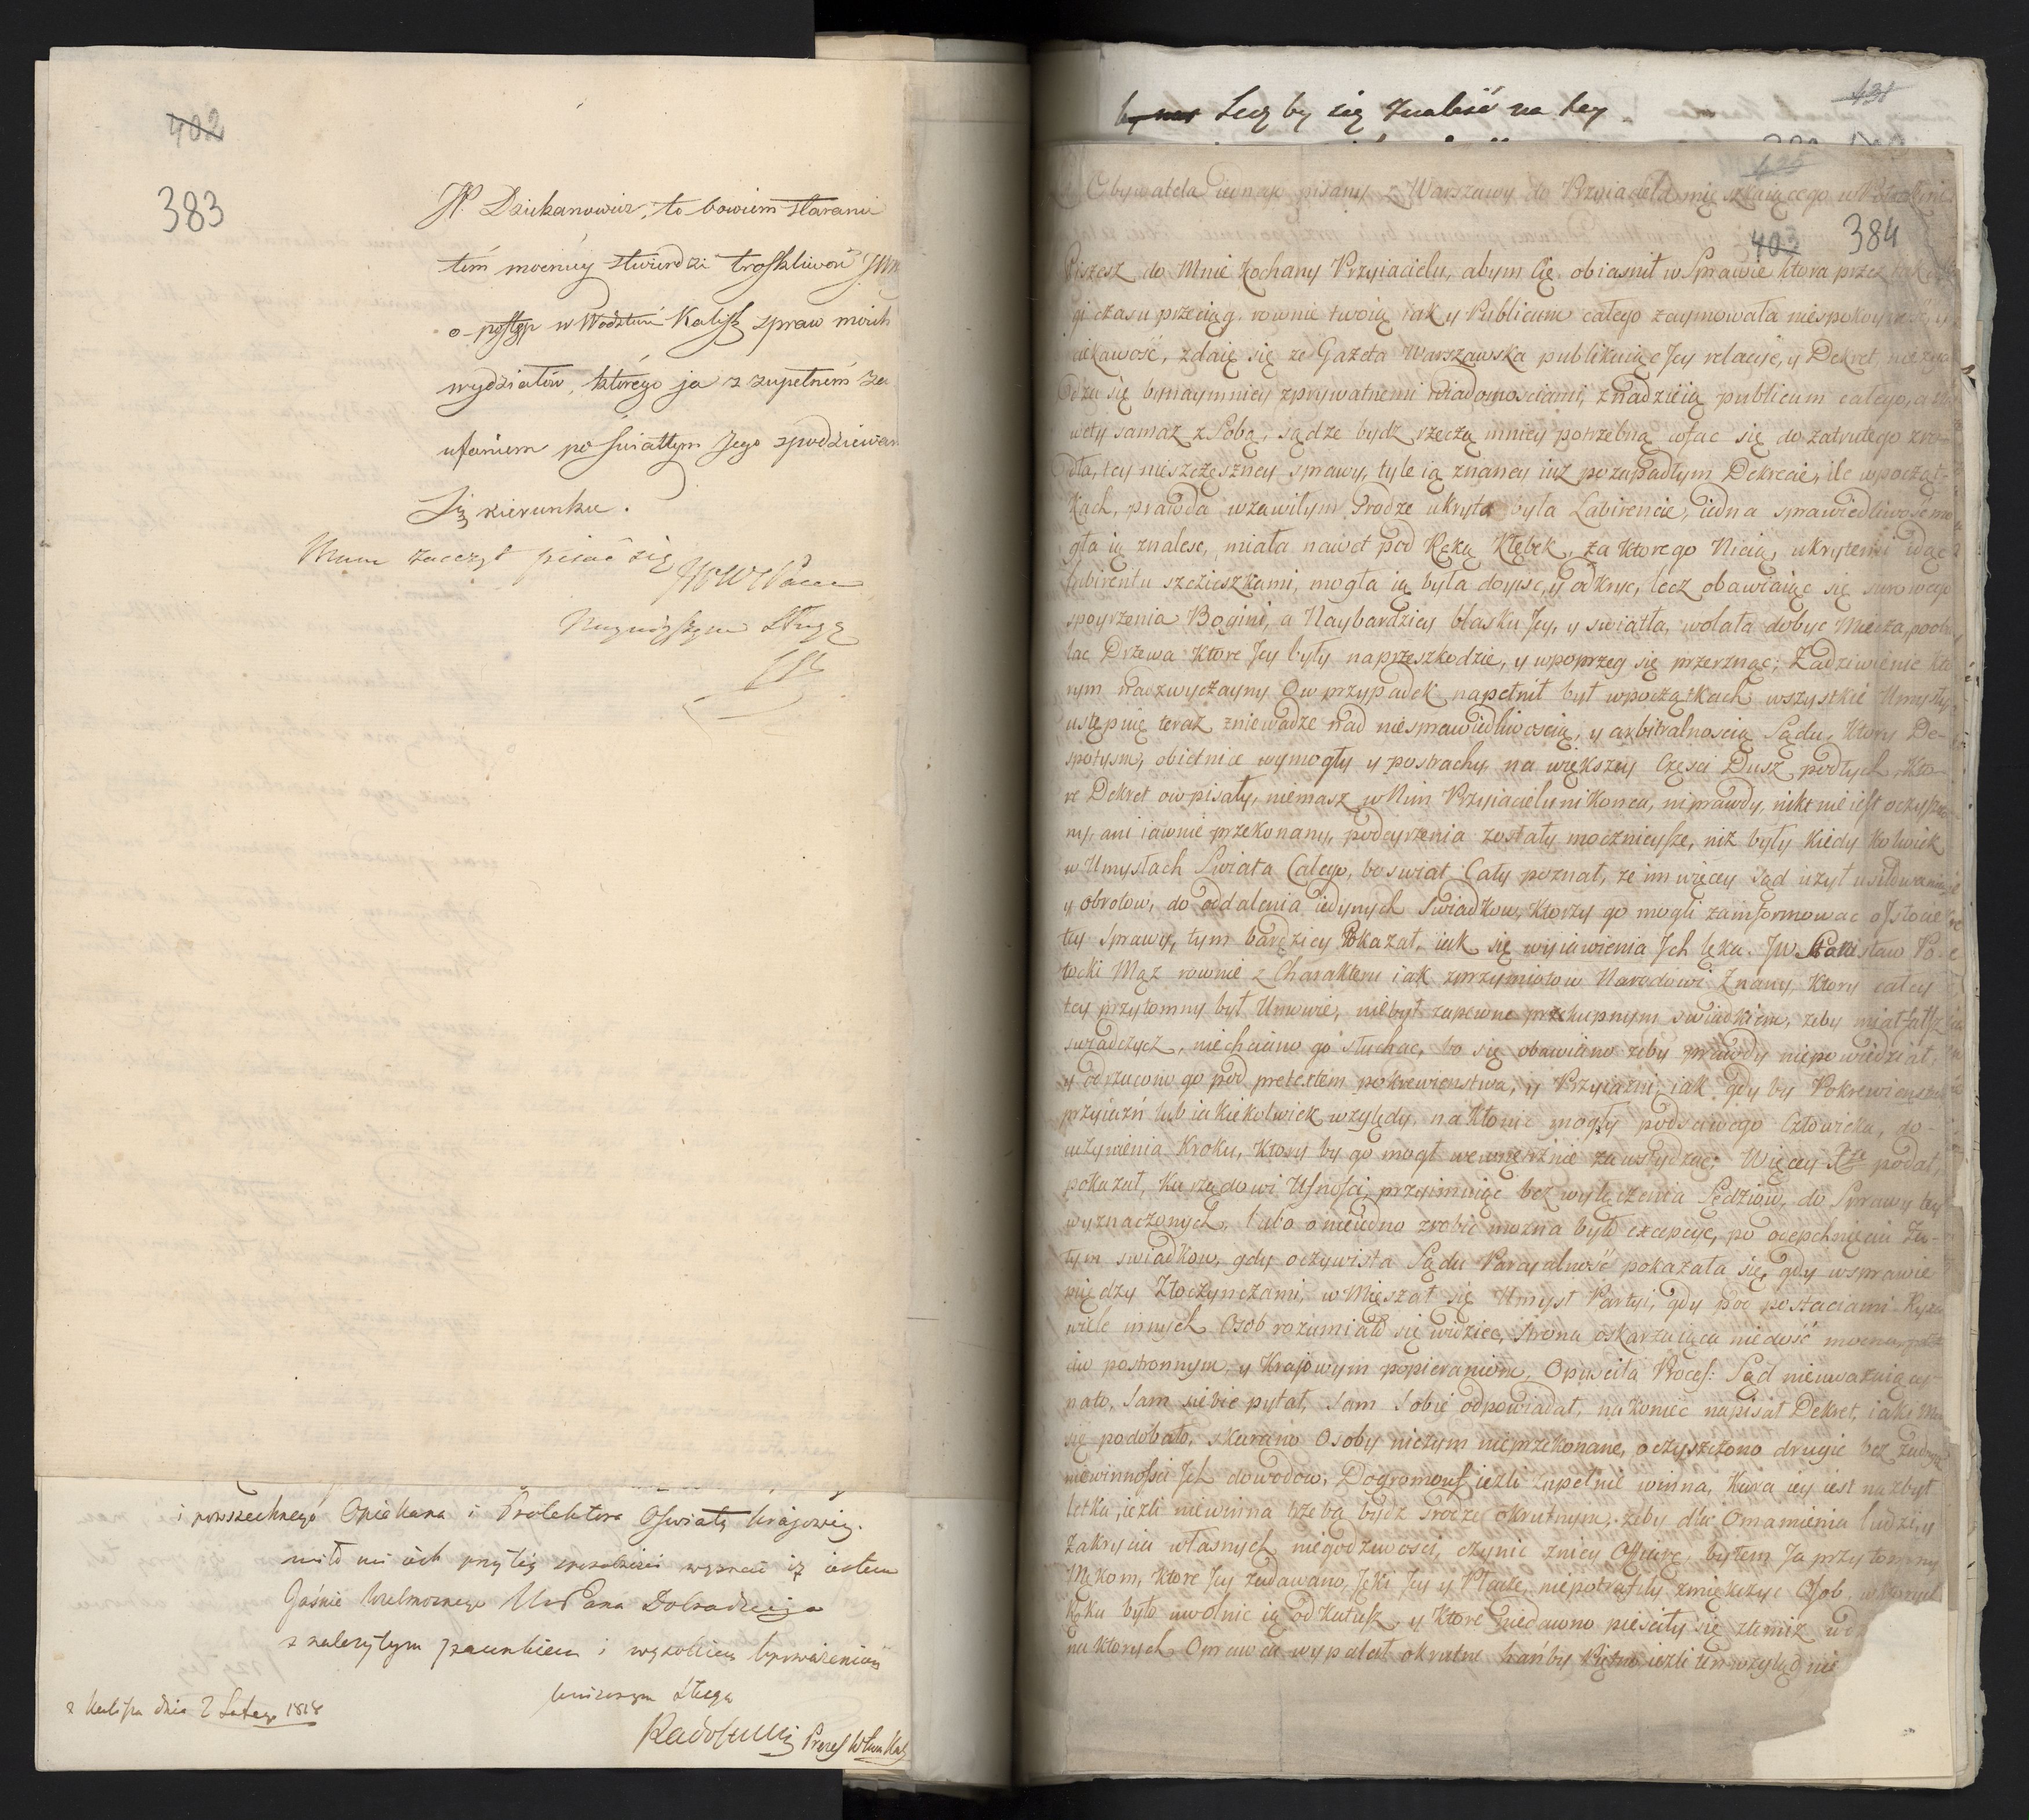 402
383
JP. Dziekanowicz, to bowiem staranie
tém mocniéy stwierdzi troskliwość JW
o postęp w Wodztwie Kalisz spraw moich
wydziałów, którego ja z zupełném za
ufaniem po światłym Jego spodziewam
Się kierunku.
Mam zaszczyt pisać się
JWWPana
Nayniższym Sługą
i powszechnego Opiekuna i Protektora Oświaty krajowéy.
miło mi jest przy téy sposobności wyznać iż jestem
Jaśnie Wielmożnego Pana Dobrodzieja
z należytym szacunkiem i wysokiem poważaniem
uniżonym Sługą
z Kalisza dnia 2 Lutego 1818
Radoliński Prezes
431
Lecz by się znaleść na tey
Obywatela iednego pisany z Warszawy do Przyiaciela mieszkaiącego w
403 384
Piszesz do Mnie Kochany Przyiacielu, abym Cię obiasnił w Sprawie ktora przez tak
gi czasu przeciąg, rownie twoię iak y Publicum całego zaymowała niespokoyność, y
ciekawość, zdaię się ze Gazeta Warszawska publikuiąc Jey relacye, y Dekret, nie zga
dza się bynaymniey z prywatnemi wiadomosciami, z nadzieią publicum całego, a
wety sama z Sobą, sądzę bydz rzeczą mniey potrzebną cofac się do zatrutego zrzo
dła, tey nieszczęsney sprawy, tyle ią znaney iuz po zapadłym Dekrecie, ile w począt-
kach, prawda w zawiłym srodze ukryta była Labirencie, iedna sprawiedliwość mo
gła ią znalesc, miała nawet pod Ręką Kłębek, za ktorego Nicią, ukrytemi idąc
Labirentu szcieszkami, mogła ią była doyisc, y odkryc, lecz obawiaiąc się surowego
spoyrzenia Bogini, a Naybardziey blasku Jey, y swiatła, wolała dobyc Miecza, poob
lac Drzewa ktore Jey były na przeszkodzie, y wpoprzeg się przerznąc; Zadziwienie kto
rym nadzwyczayny Ow przypadek napełnił był w początkach wszystkie Umysły
ustępuię teraz zniewadze nad niesprawiedliwoscią, y arbitralnoscią Sądu, ktory De-
spotysm, obietnice wymogły y postrachy, na większey Częsci Dusz podłych, kto-
re Dekret ow pisały, niemasz w Nim Przyiacielu ni Konca, ni prawdy, nikt nie iest oczyszczo
ny, ani iawnie przekonany, podeyrzenia zostały moczniejsze, niz były kiedy kolwiek
w Umysłach Swiata Całego, bo swiat Cały poznał, ze im więcey Sąd uzył usiłowania
y obrotow, do oddalenia iedynych Swiadkow, ktorzy go mogli zainformowac o Istocie
tey Sprawy, tym bardziey Pokazał, iak się wyiawienia Jch lęka. JW Stanisław Po-
tocki Mąz rownie z Charakteru iak z przymiotow Narodowi Znany, ktory całey
tey przytomny był Umowie, niebył zapewne przekupnym swiadkiem, zeby miał fałsz
swiadczycz, niechciano go słuchac, bo się obawiano zeby prawdy niepowiedział,
y odrzucono go pod pretextem pokrewienstwa, y Przyiazni, iak gdy by Pokrewienstwo
przyiazń lub iakiekolwiek wzylędy, nakłonic mogły podsciwego Człowieka, do-
uczynienia Kroku, ktory by go mogł wewnętrznie zawstydzac; Więcey podał,
pokazał, Ku rządowi Ufności, przyimuiąc bez wyłączenia Sędziow, do Sprawy tey
wyznaczonych, lubo o nieiedno zrobic mozna było excepcye, po odepchnięciu Za-
tym swiadkow, gdy oczywista Sądu Parcyalność pokazała się, gdy w sprawie
między Złoczynczami, w Mięszał się Umysł Partyi, gdy pod postaciami
wiele innych Osob rozumiało się widziec, strona oskarzaiąca niedość mocna,
iw postronnym, y Kraiowym popieraniom, Opusciła Proces: Sąd nieuwazaiąc
nato, Sam siebie pytał, Sam Sobie odpowiadał, na koniec napisał Dekret, iaki Mu
się podobało, skarano Osoby niczym nieprzekonane, oczyszczono drugie bez zadnych
niewinności Jch dowodow, Dogromowa iezli zupełnie winna, Kara iey iest nazbyt
letka, iezli niewinna trzeba bydz srodze okrutnym, zeby dla Omamienia ludzi, y
zakrycia własnych niegodziwosci, czynic z niey Ofiarę, byłem Ja przytomny
Mękom, ktore Jey zadawano, Jęki Jey y Płacze, niepotrafiły zmiękczyc Osob, w ktorych
Ręku było uwolnic ią od Katusz, y ktore niedawno piesciły się z temiz
na ktorych Oprawca wypalał okrutne hańby Piętno iezli ten wzyląd nie